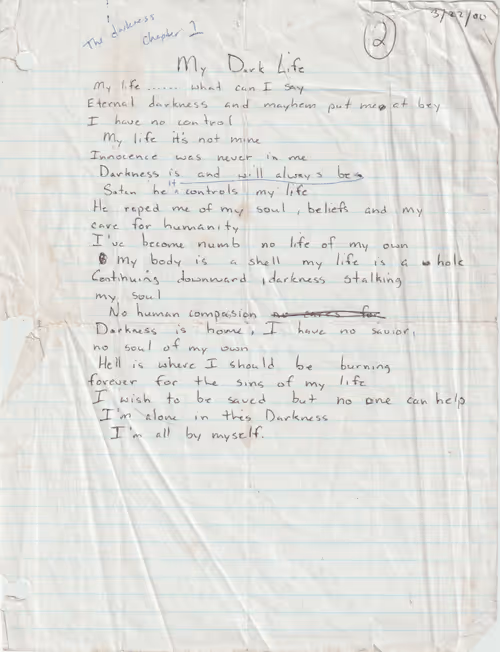 3/22/00
The darkness
Chapter 1
2
My Dark Life
My life ...... what can I say
Eternal darkness and mayhem put me at bey
I have no control
My life it's not mine
Innocence was never in me
Darkness is and will always be
Satan he it controls my life
He reped me of my soul, beliefs and my
care for humanity
I've become numb no life of my own
My body is a shell my life is a hole
Continuing downward, darkness stalking
my soul
No human compasion no cares for
Darkness is home, I have no savior,
no soul of my own
Hell is where I should be burning
forever for the sins of my life
I wish to be saved but no one can help
I'm alone in this Darkness
I'm all by myself.